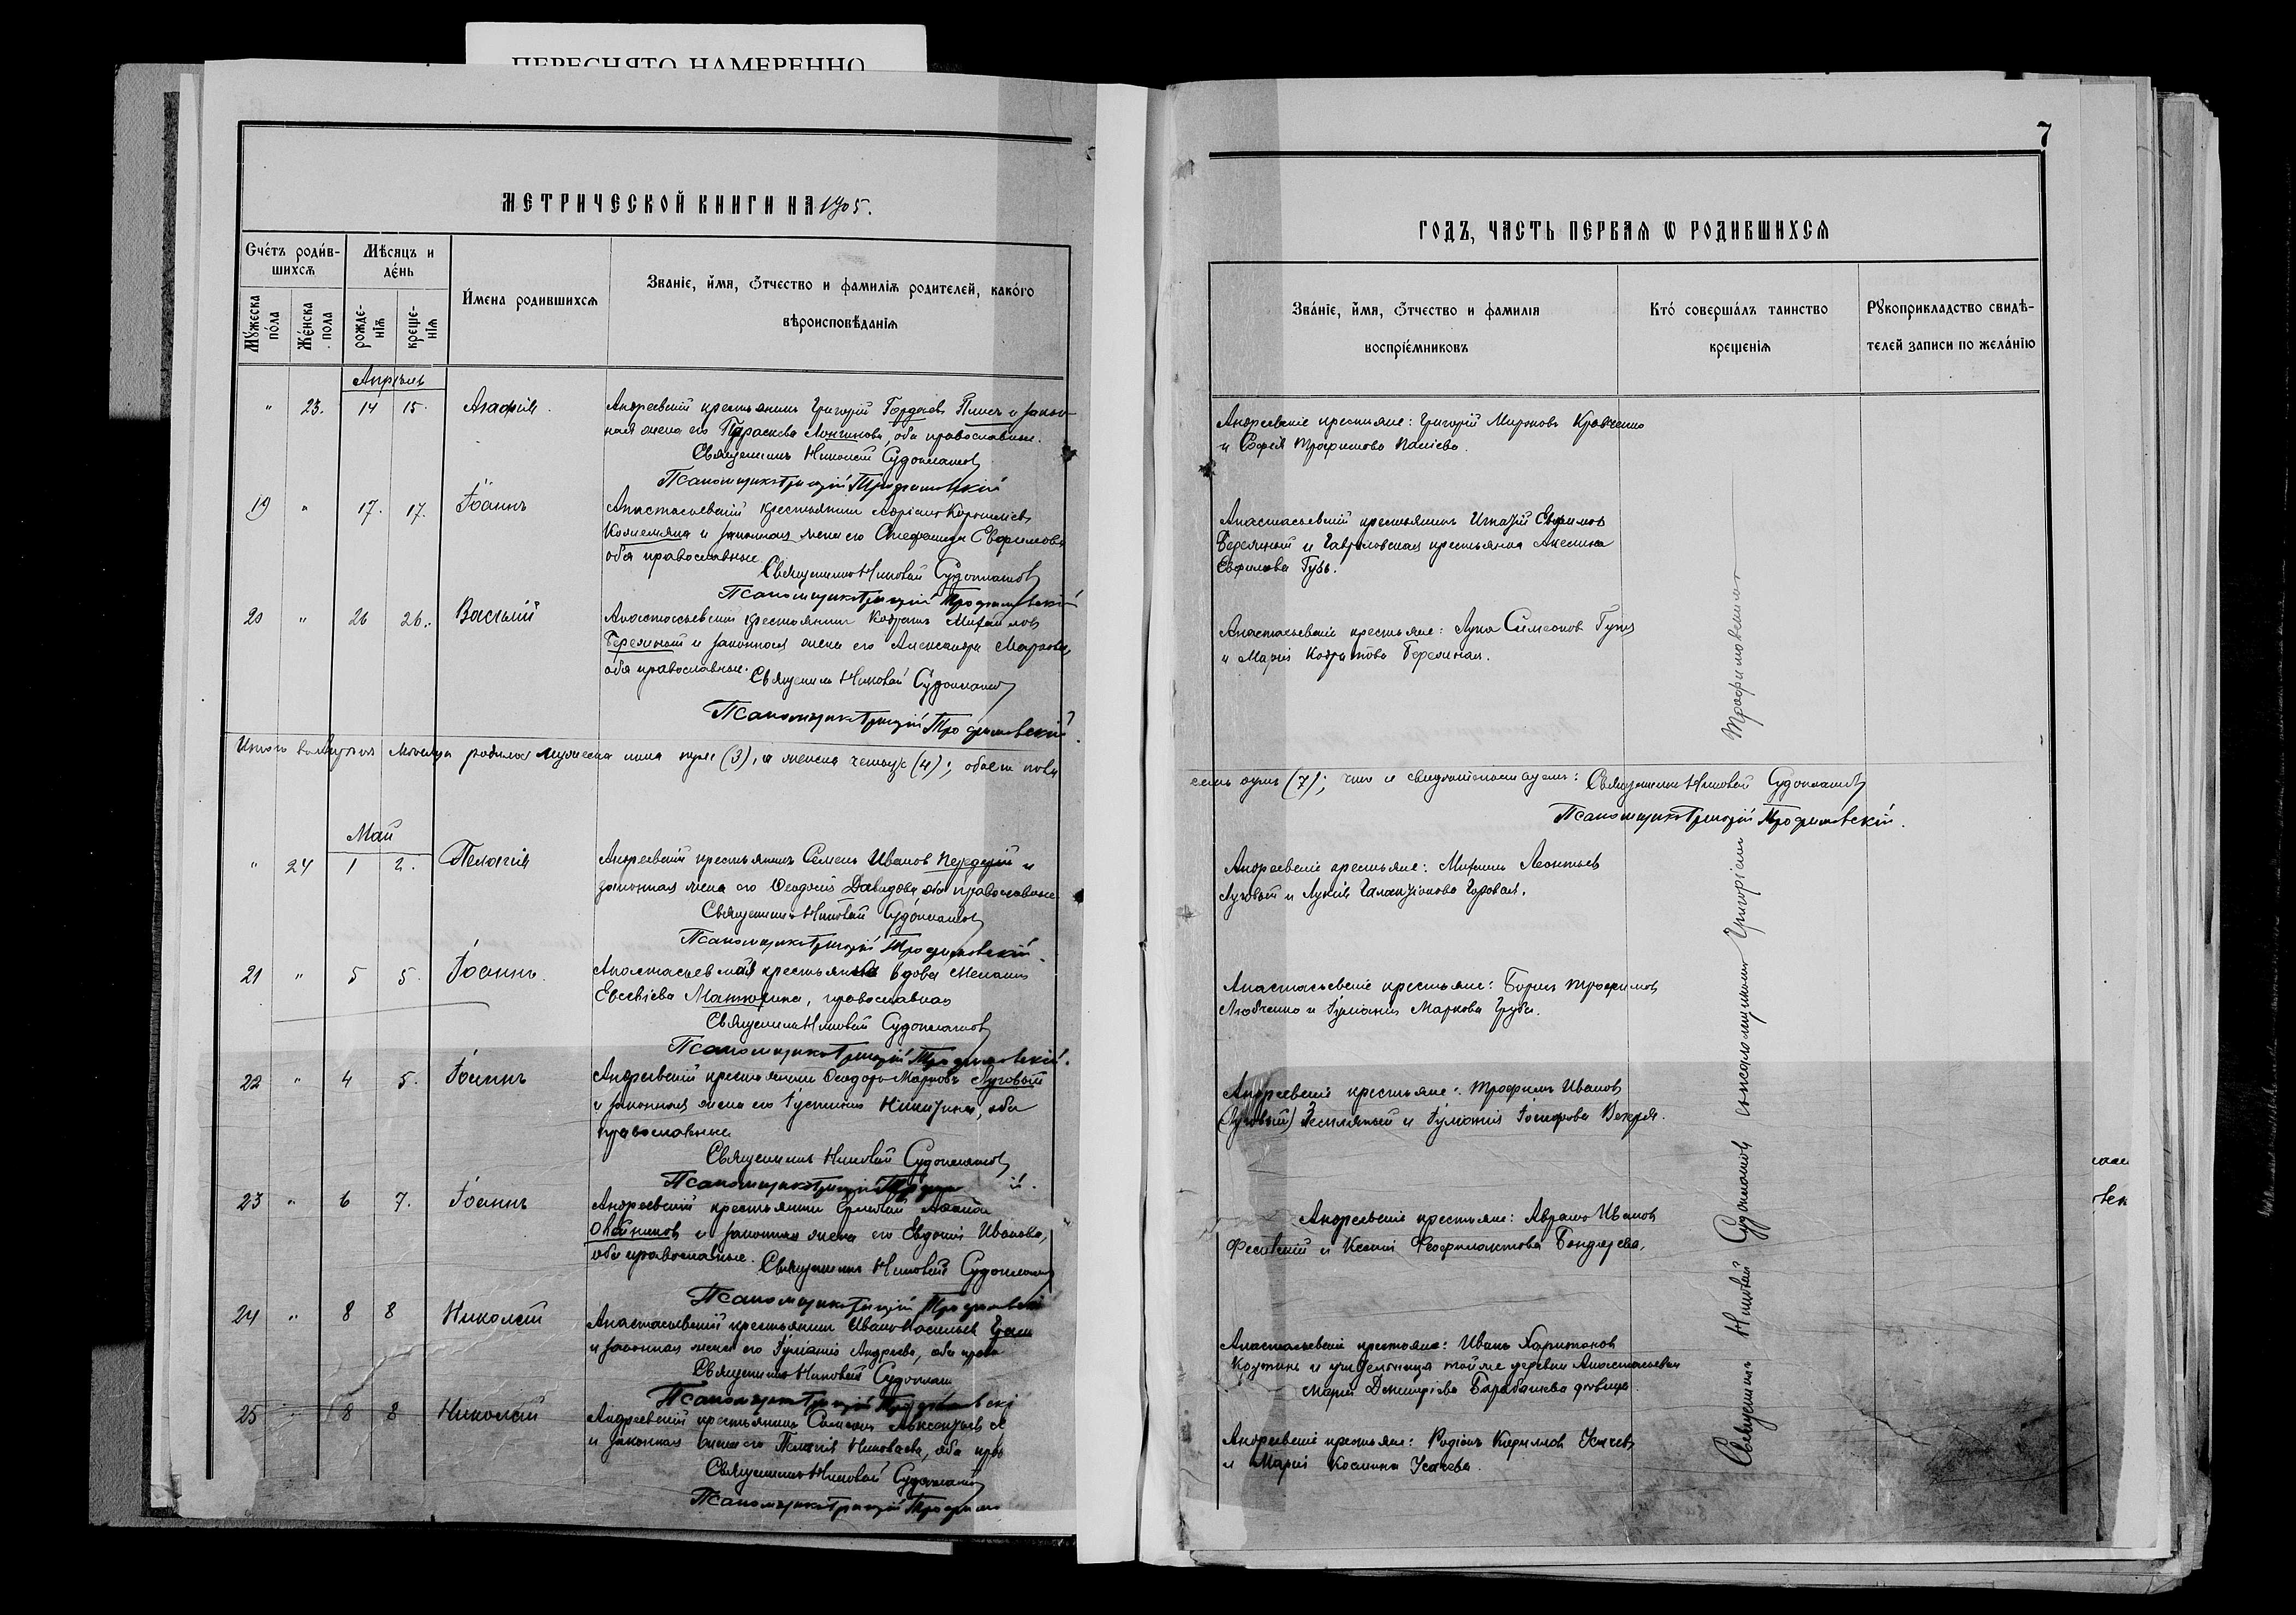 ПЕРЕСНЯТО НАМЕРЕННО
МЕТРИЧЕСКОЙ КНИГИ НА 1905.
Счетъ родив-
шихся
Мѣсяцъ и
день
Мужеска
пола
Женска
пола
рожде-
нія
креще-
нія
Имена родившихся
Званіе, имя, отчество и фамилія родителей, какого
вѣроисповѣданія
Апрѣль
" 23. 14 15. Агафія.
Андреевскій крестьянинъ Григорій Гордѣевъ Плисъ и закон-
ная жена его Параскева Лонгинова, оба православные.
Священникъ Николай Судоплатовъ
Псаломщикъ Григорій Трофимовскій
19 " 17. 17. Іоаннъ
Анастасьевскій крестьянинъ Корниліевъ
Кожемяка и законная жена его Стефанида Ефимова
оба православные.
Священникъ Николай Судоплатовъ
Псаломщикъ Григорій Трофимовскій
20 " 26 26. Василій
Анастасьевскій крестьянинъ Кодратъ Михайловъ
Бережный и законная жена его Александра Маркова
оба православные.
Священникъ Николай Судоплатовъ
Псаломщикъ Григорій Трофимовскій.
Итого въ Апрѣлѣ мѣсяцѣ родилось мужеска пола три (3), а женска четыре (4); обоего пола
Май
" 24 1 2. Пелагія
Андреевскій крестьянинъ Семенъ Ивановъ Передерій и
законная жена его Ѳеодосія Давидова оба православные
Священникъ Николай Судоплатовъ
Псаломщикъ Григорій Трофимовскій.
21 " 5 5. Іоаннъ.
Анастасьевская крестьянка вдова Меланія
Евсевіева Матюхина, православная
Священникъ Николай Судоплатовъ
Псаломщикъ Григорій Трофимовскій.
22 " 4 5. Іоаннъ
Андреевскій крестьянинъ Ѳеодоръ Марковъ Луговый
и законная жена его Іустинія Никитина, оба
православные
Священникъ Николай Судоплатовъ
Псаломщикъ Григорій
23 " 6 7. Іоаннъ
Андреевскій крестьянинъ
Олейниковъ и законная жена его Евдокія Иванова,
оба православные.
Священникъ Николай Судоплатовъ
Псаломщикъ Григорій Трофимовскій
24 " 8 8 Николай
Анастасьевскій крестьянинъ Иванъ
и законная жена его Іуліанія Андреева, оба право
Священникъ Николай Судоплат
Псаломщикъ Григорій Трофимовскі
25 " 8 8 Николай
Андреевскій крестьянинъ Симеонъ Авксентьевъ
и законная жена его Пелагія Николаева, оба пра
Священникъ Николай Судоплатовъ
Псаломщикъ Григорій Трофим
7
ГОДЪ, ЧАСТЬ ПЕРВАЯ Ѡ РОДИВШИХСЯ
Званіе, имя, отчество и фамилія
воспріемниковъ
Кто совершалъ таинство
крещенія
Рукоприкладство свидѣ-
телей записи по желанію
Андреевскіе крестьяне: Григорій Мироновъ Кравченко
и Софія Трофимова Паліева.
Анастасьевскій крестьянинъ Игнатій Ефимовъ
Бережный и Гавриловская крестьянка Акелина
Ефимова Губь.
Анастасьевскіе крестьяне: Лука Симеоновъ
и Марія Кодратова Бережная.
семь душъ (7); что и свидѣтельствуемъ: Священникъ Николай Судоплатовъ
Псаломщикъ Григорій Трофимовскій.
Андреевскіе крестьяне: Михаилъ Леонтьевъ
Луговый и Лукія Галактіонова Горовая.
Анастасьевскіе крестьяне: Борисъ Трофимовъ
Любченко и Іуліанія Маркова Груба.
Андреевскіе крестьяне: Трофимъ Ивановъ
(Луговый) Земляный и Іуліанія Іосифова Векря.
Андреевскіе крестьяне: Аврамъ Ивановъ
Фесивскій и Ксенія Феофилактова Бондарева.
Анастасьевскіе крестьяне: Иванъ Харитоновъ
и учительница той же деревни Анастасьевки
Марія Димитріева Барабашева дѣвица.
Андреевскіе крестьяне: Родіонъ Кирилловъ Усачевъ
и Марія Космина Усачева.
Священникъ Николай Судоплатовъ съ псаломщикомъ Григоріемъ Трофимовскимъ